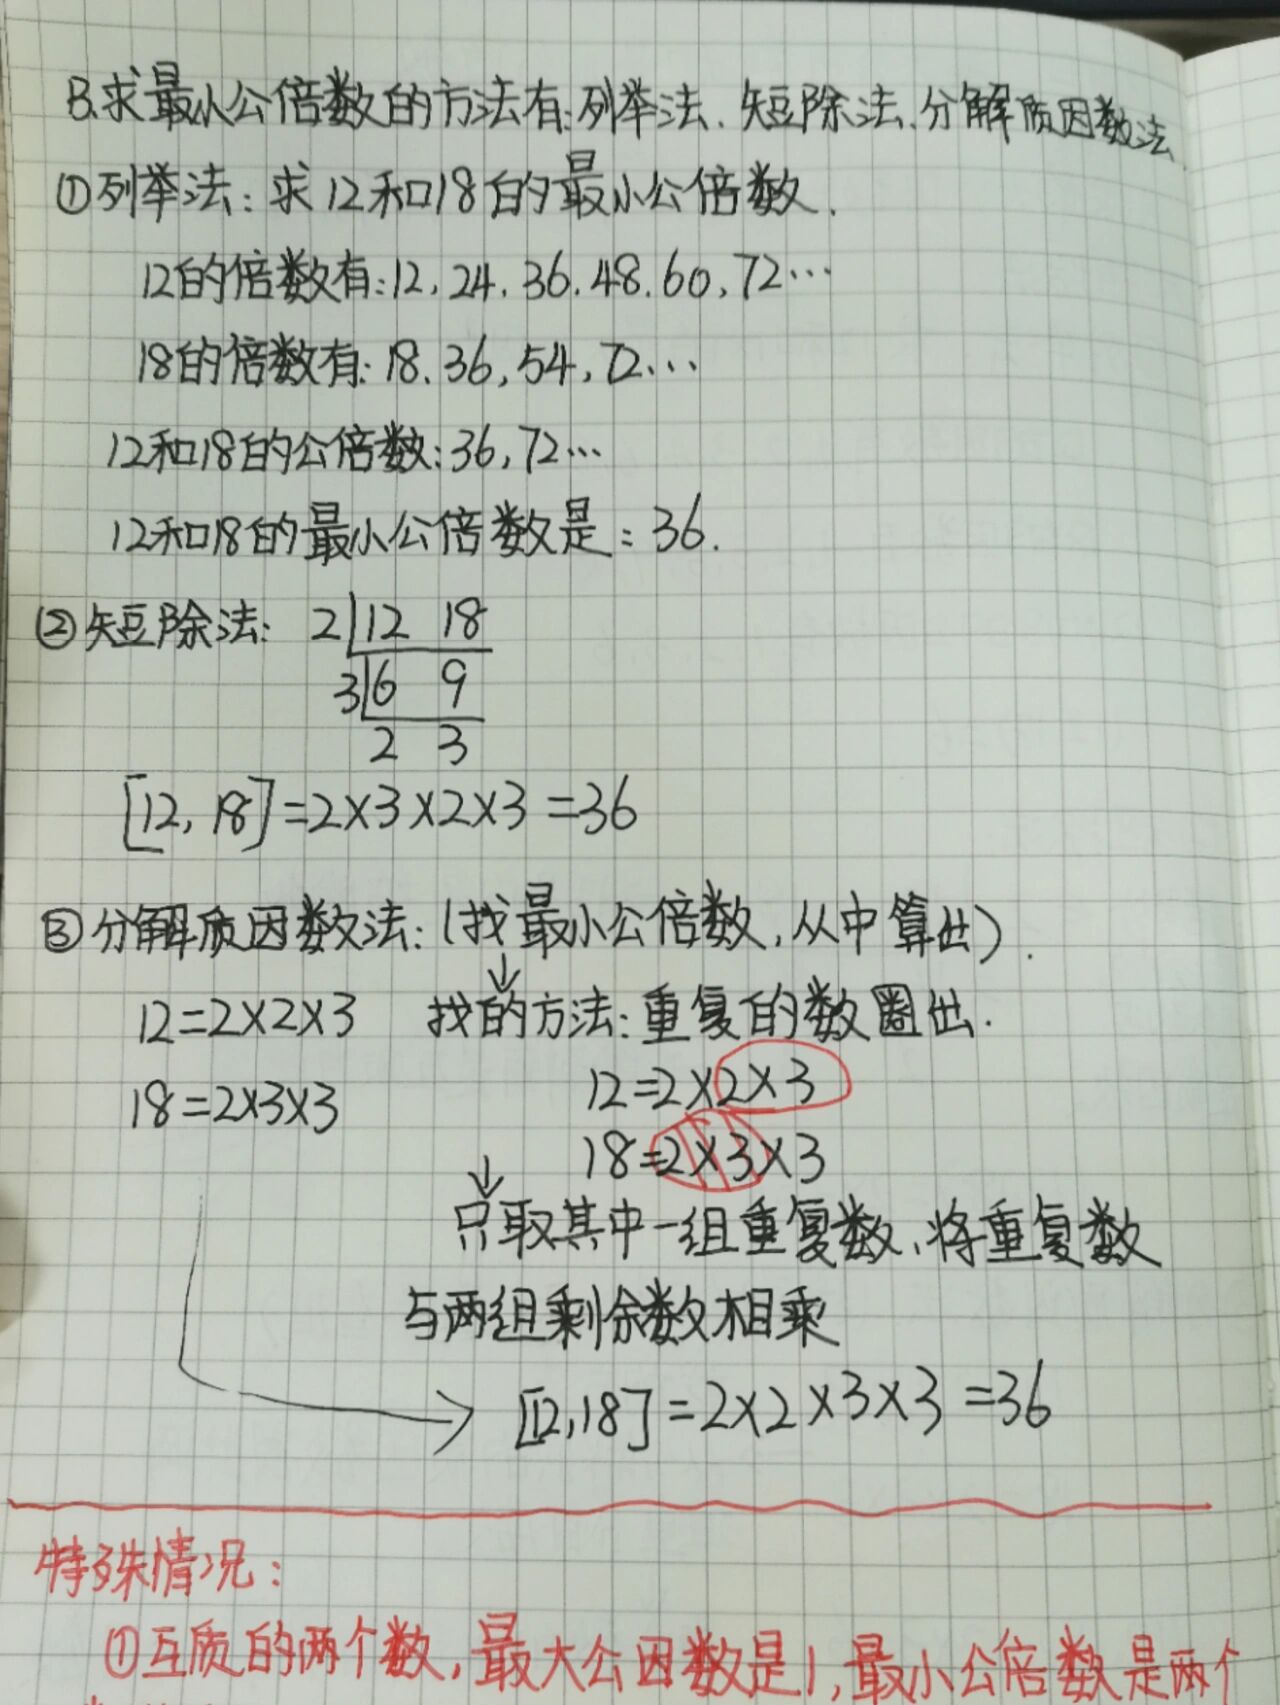 B.求最小公倍数的方法有:列举法、短除法、分解质因数法
①列举法:求12和18的最小公倍数.
12的倍数有:12,24,36,48,60,72…
18的倍数有:18、36,54,72…
12和18的公倍数:36,72…
12和18的最小公倍数是:36.
②短除法: 2 12 18
3 6 9
2 3
[12,18]=2×3×2×3=36
③分解质因数法:(找最小公倍数,从中算出).
↓
12=2×2×3 找的方法:重复的数圈出.
12=2×2×3
18=2×3×3
18=2×3×3
↓
只取其中一组重复数、将重复数
与两组剩余数相乘
[12,18]=2×2×3×3=36
特殊情况:
①互质的两个数,最大公因数是1,最小公倍数是两个